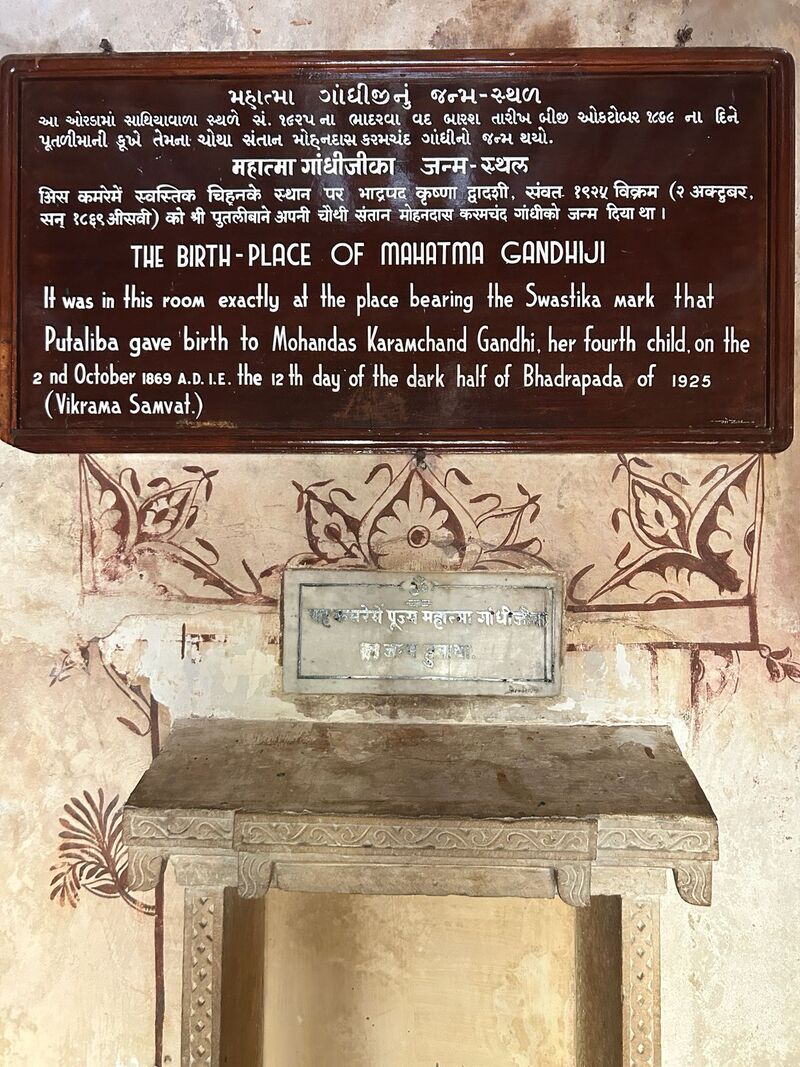 મહાત્મા ગાંધીજીનું જન્મ-સ્થળ
આ ઓરડામાં સાથિયાવાળા સ્થળે સં. ૧૯૨૫ ના ભાદરવા વદ બારશ તારીખ બીજી ઓકટોબર ૧૮૬૯ ના દિને
પૂતળીમાની કૂખે તેમના ચોથા સંતાન મોહનદાસ કરમચંદ ગાંધીનો જન્મ થયો.
महात्मा गांधीजीका जन्म-स्थल
अिस कमरेमें स्वस्तिक चिह्नके स्थान पर भाद्रपद कृष्णा द्वादशी, संवत १९२५ विक्रम (२ अक्टुबर,
सन् १८६९ अीसवी) को श्री पुतलीबाने अपनी चौथी संतान मोहनदास करमचंद गांधीको जन्म दिया था।
THE BIRTH-PLACE OF MAHATMA GANDHIJI
It was in this room exactly at the place bearing the Swastika mark that
Putaliba gave birth to Mohandas Karamchand Gandhi, her fourth child, on the
2 nd October 1869 A.D. I.E. the 12th day of the dark half of Bhadrapada of 1925
(Vikrama Samvat.)
ॐ
यह कमरेमें पूज्य महात्मा गांधीजीका
जन्म हुवाथा.